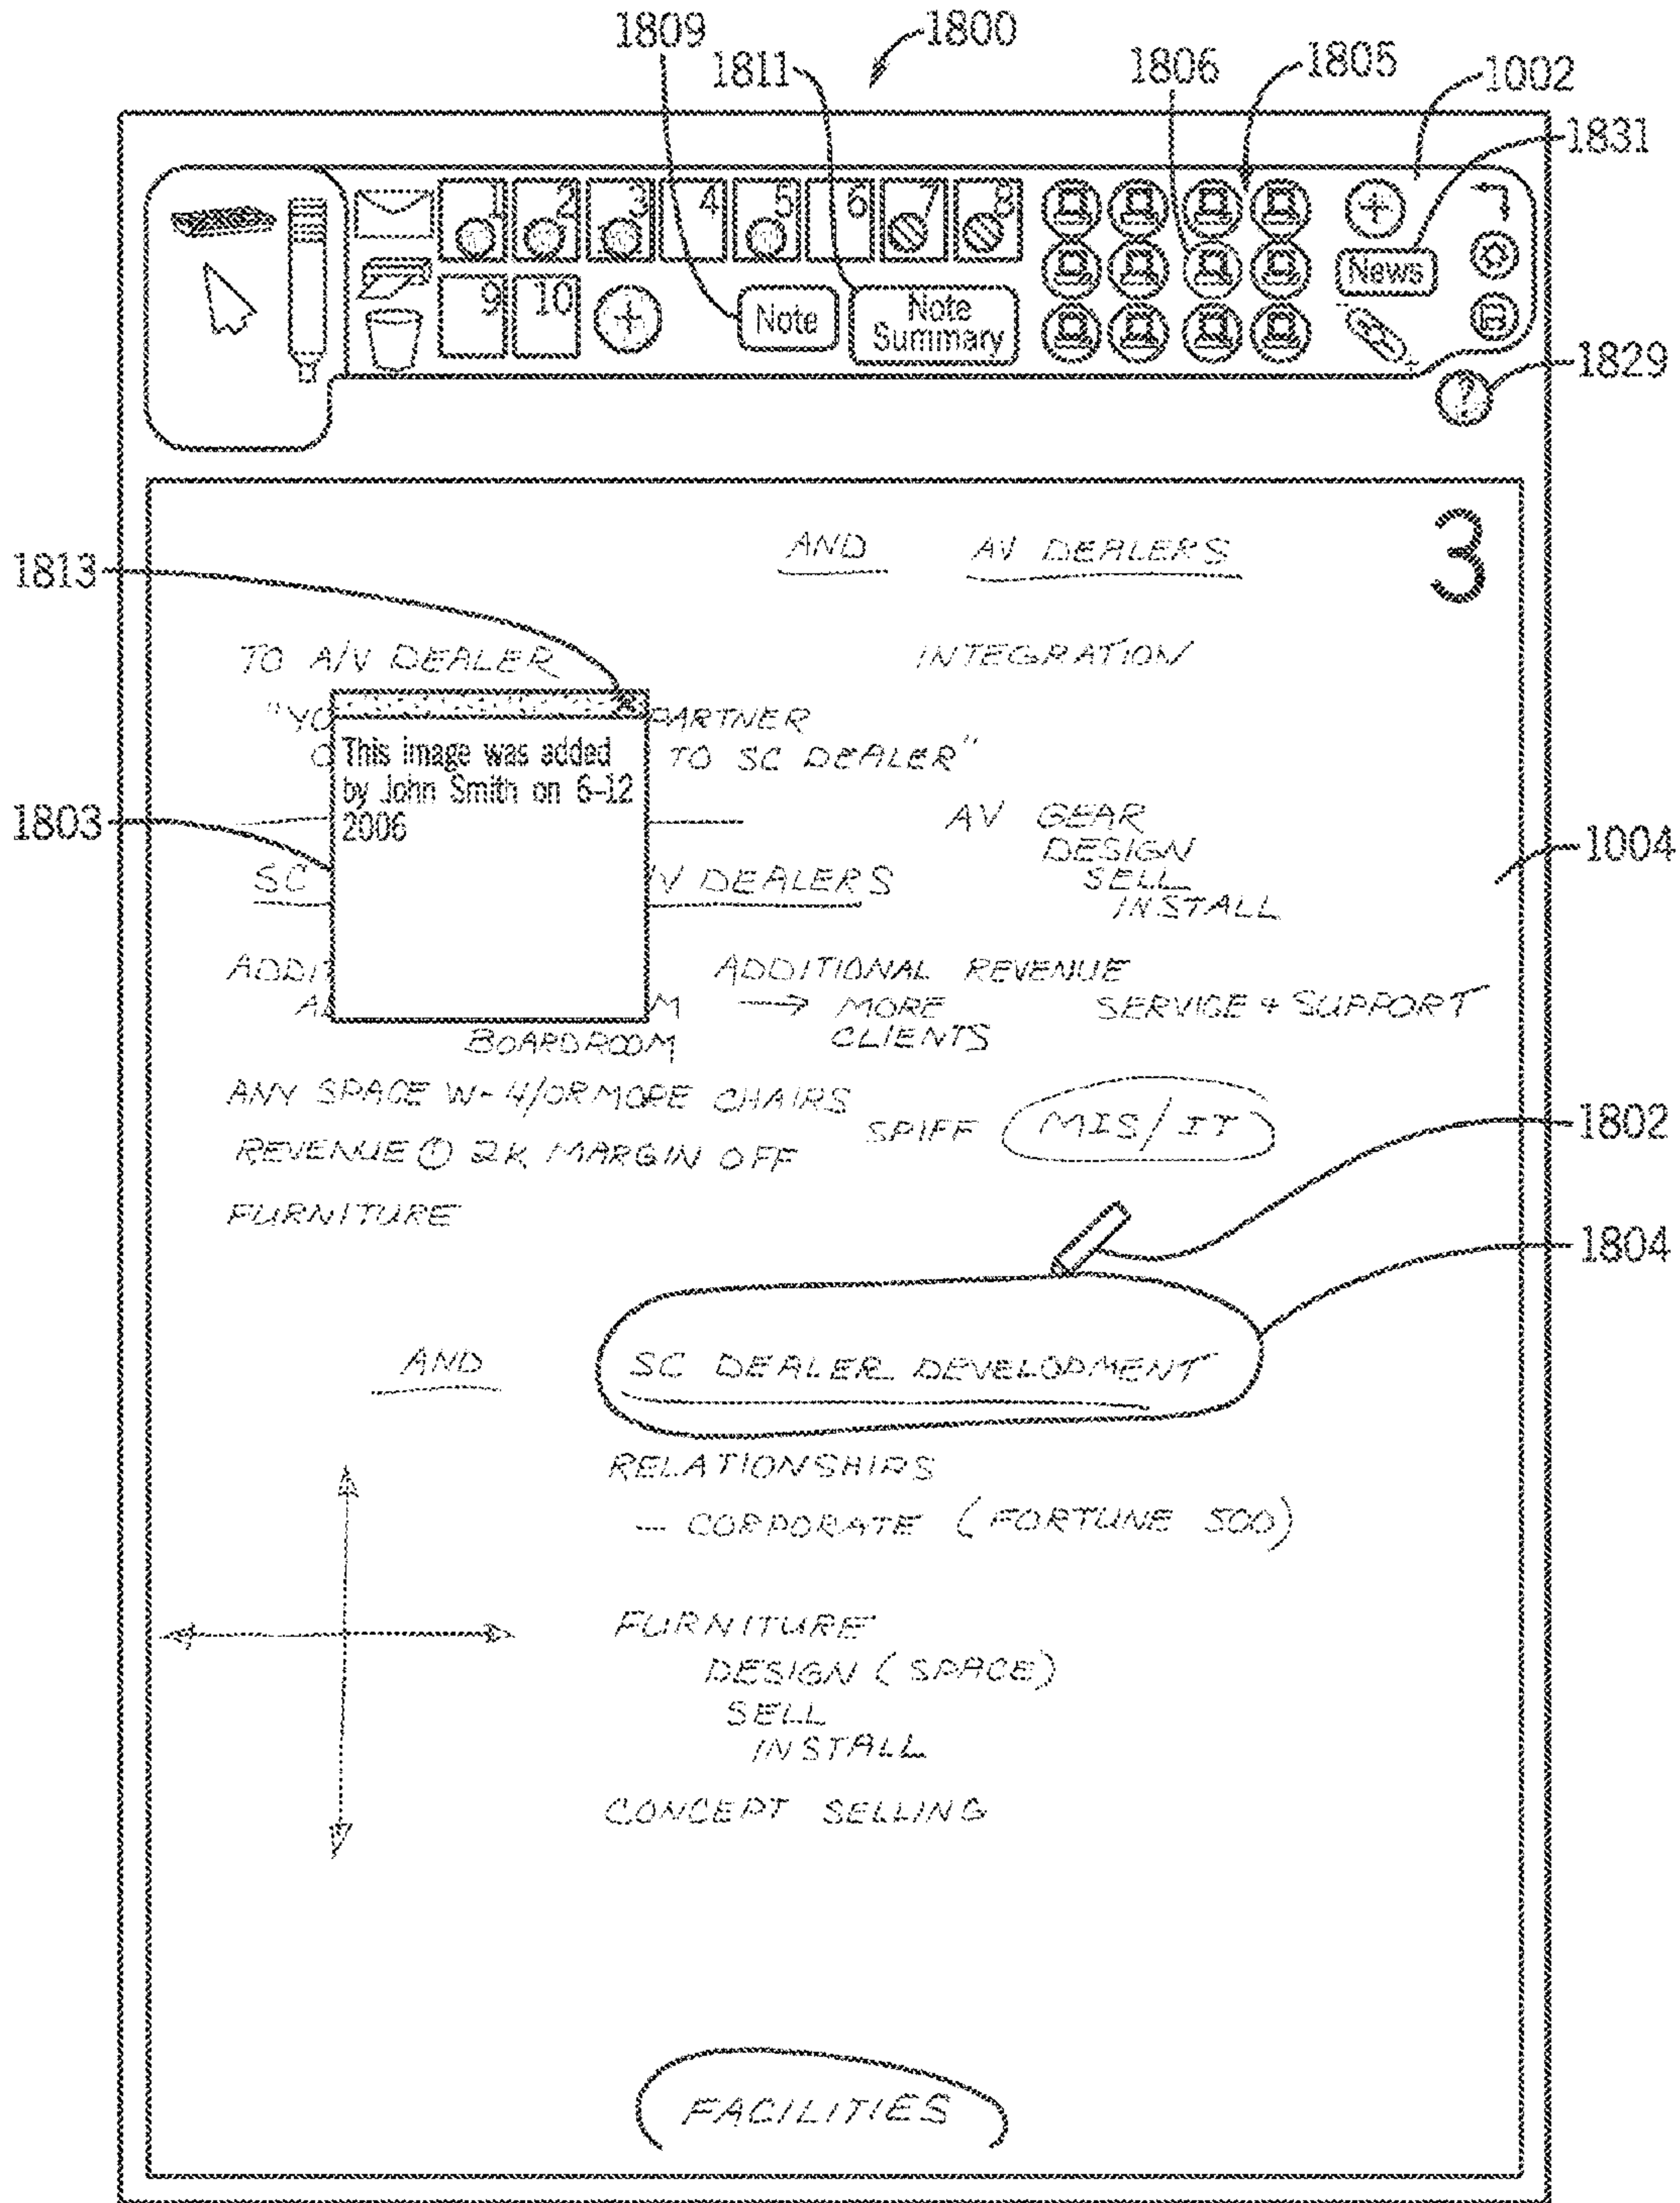 1800
1809
1811
1806
1805
1002
1831
1 2 3 4 5 6 7 8
9 10
Note
Note
Summary
News
?
1829
3
AND AV DEALERS
1813
TO A/V DEALER INTEGRATION
"YO PARTNER
TO SC DEALER"
This image was added
by John Smith on 6-12
2006
1803
AV GEAR
DESIGN
SELL
INSTALL
1004
SC V DEALERS
ADDIT ADDITIONAL REVENUE
M → MORE SERVICE + SUPPORT
BOARDROOM CLIENTS
ANY SPACE W- 4/OR MORE CHAIRS
SPIFF MIS/IT
1802
REVENUE 2K MARGIN OFF
FURNITURE
1804
AND SC DEALER DEVELOPMENT
RELATIONSHIPS
- CORPORATE (FORTUNE 500)
FURNITURE
DESIGN (SPACE)
SELL
INSTALL
CONCEPT SELLING
FACILITIES